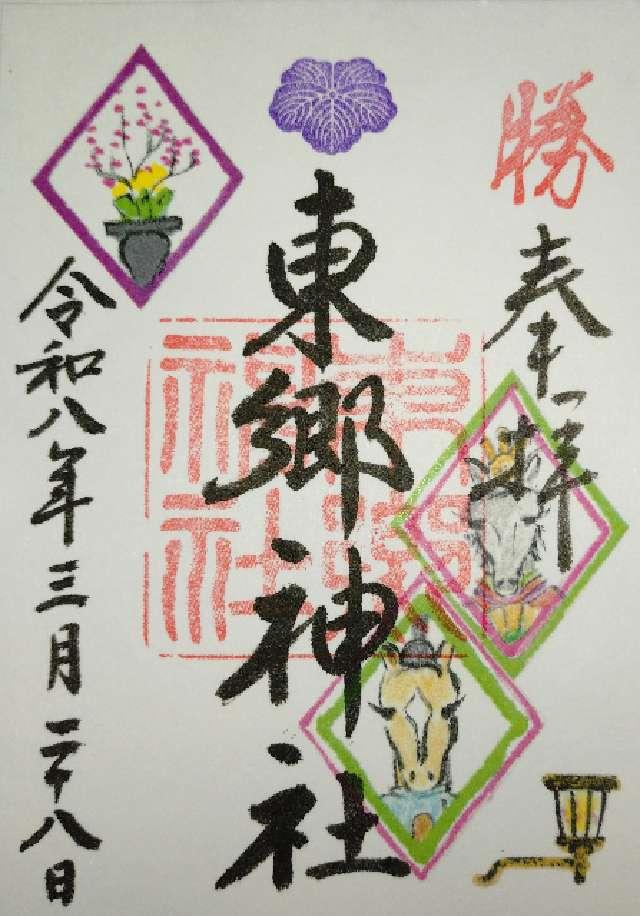 勝
奉拝
東郷神社
東郷神社
令和八年三月二十八日